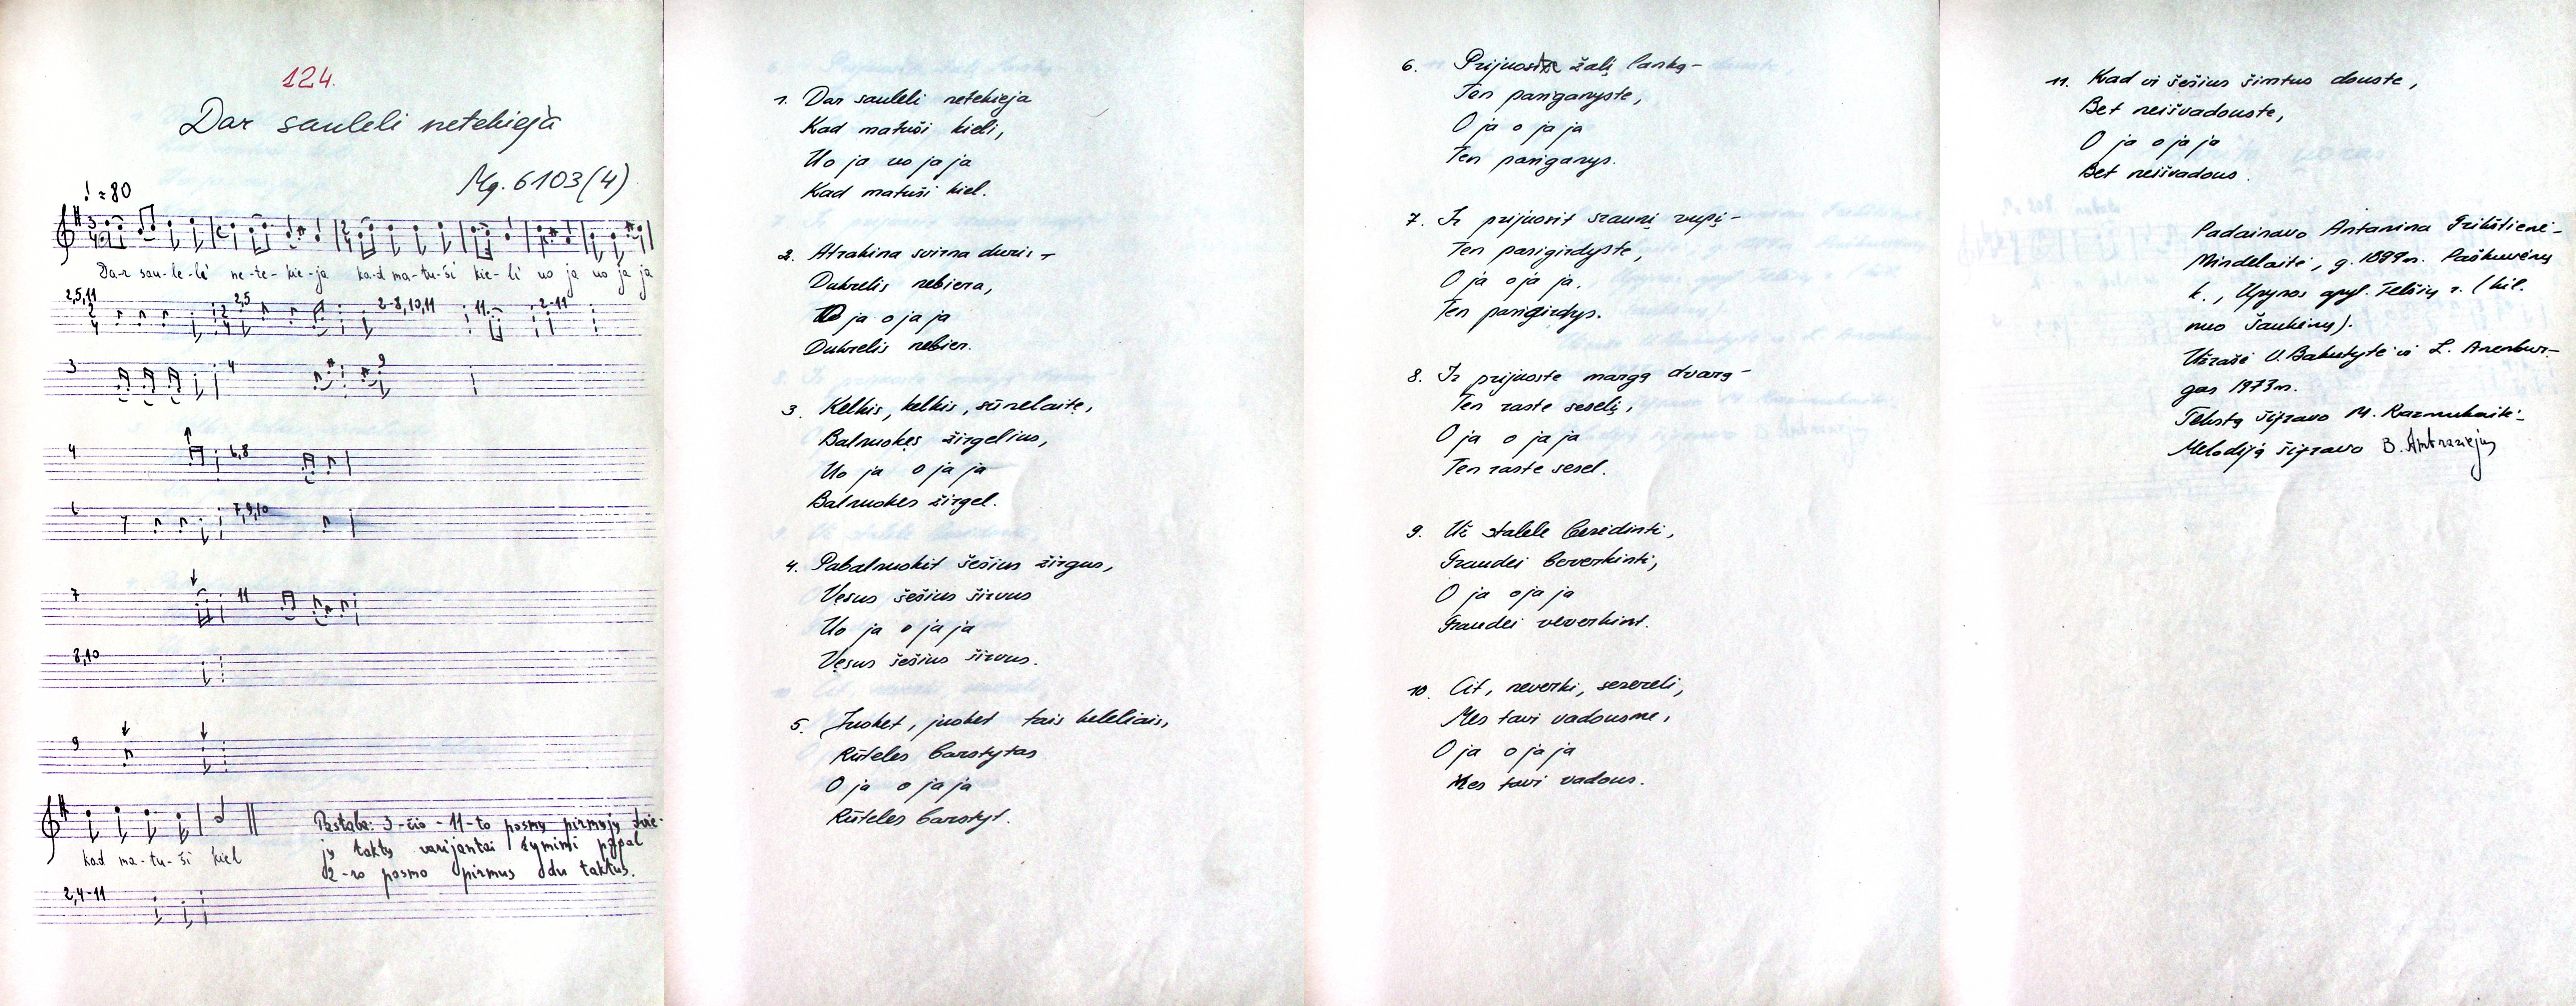 124.
Dar sauleli netekieja
Mg. 6103(4)
♩ = 80
Da-r sau-le-lė ne-te-kie-ja ka-d ma-tu-ši kie-li uo ja uo ja ja
2,5,11 2,5 2-8,10,11 11 2-11
3 4 9
4 6,8
6 7,9,10
7 11
8,10
9
kad ma-tu-ši kiel
Pastaba: 3-čio - 11-to posmų pirmųjų dvie-
jų taktų varijantai žymimi pagal
2-ro posmo pirmus du taktus.
2,4-11
1. Dar sauleli netekieja
Kad matuši kieli,
Uo ja uo ja ja
Kad matuši kiel.
2. Atrakina svirna duris -
Dukrelis nebiera,
O ja o ja ja
Dukrelis nebier.
3. Kelkis, kelkis, sūnelaite,
Balnuokes žirgelius,
Uo ja o ja ja
Balnuokes žirgel.
4. Pabalnuokit šešius žirgus,
Vesus šešius širvus
Uo ja o ja ja
Vesus šešius širvus.
5. Juoket, juoket tais keleliais,
Rūteles barstytas
O ja o ja ja
Rūteles barstyt.
6. Prijuoste žalį lanką -
Ten pasiganyste,
O ja o ja ja
Ten pasiganys.
7. Ir prijuosit sraunį vupį -
Ten pasigirdyste,
O ja oja ja.
Ten pasigirdys.
8. Ir prijuoste margą dvarą -
Ten raste seselį,
O ja o ja ja
Ten raste sesel.
9. Už stalele besėdinti,
Graudei beverkinti,
O ja oja ja
Graudei veverkint.
10. Cit, neverki, sesereli,
Mes tavi vadousme,
O ja o ja ja
Mes tavi vadous.
11. Kad vi šešius šimtus douste,
Bet neišvadouste,
O ja o ja ja
Bet neišvadous.
Padainavo Antanina Grikštienė-
Mindelaitė, g. 1899 m. Paškuvėnų
k., Upynos apyl. Telšių r. (kil.
nuo Šaukėnų).
Užrašė V. Bakutytė ir L. Anenbur-
gas 1973 m.
Tekstą šifravo M. Razmukaitė
Melodiją šifravo B. Ambraziejus